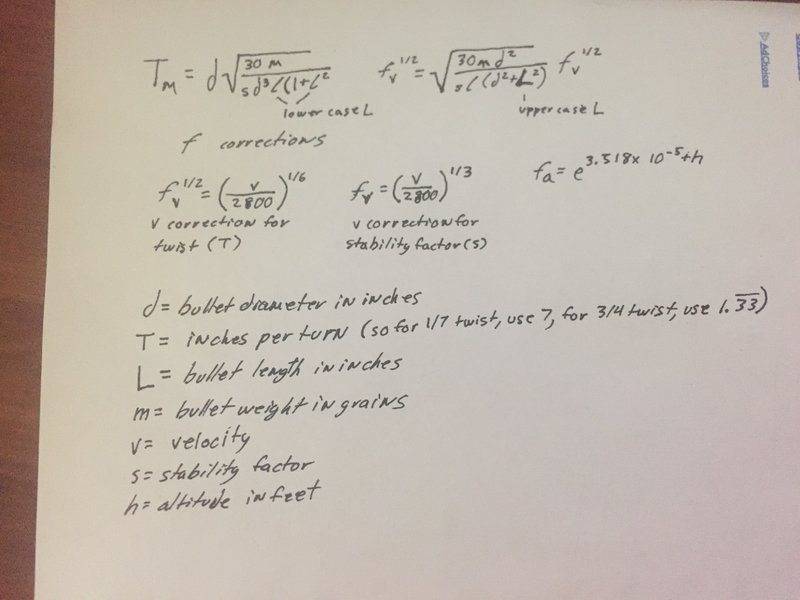 T_m = d√(30 m / s d³ l(1+l²   f_v^1/2 = √(30 m d² / s l (d²+L²)) f_v^1/2
lower case L   upper case L
f corrections
f_v^1/2 = (v/2800)^1/6   f_v = (v/2800)^1/3   f_a = e^3.518x10^-5+h
v correction for twist (T)   v correction for stability factor (s)
d = bullet diameter in inches
T = inches per turn (so for 1/7 twist, use 7, for 3/4 twist, use 1.3̅3̅)
L = bullet length in inches
m = bullet weight in grains
v = velocity
s = stability factor
h = altitude in feet
AdChoices